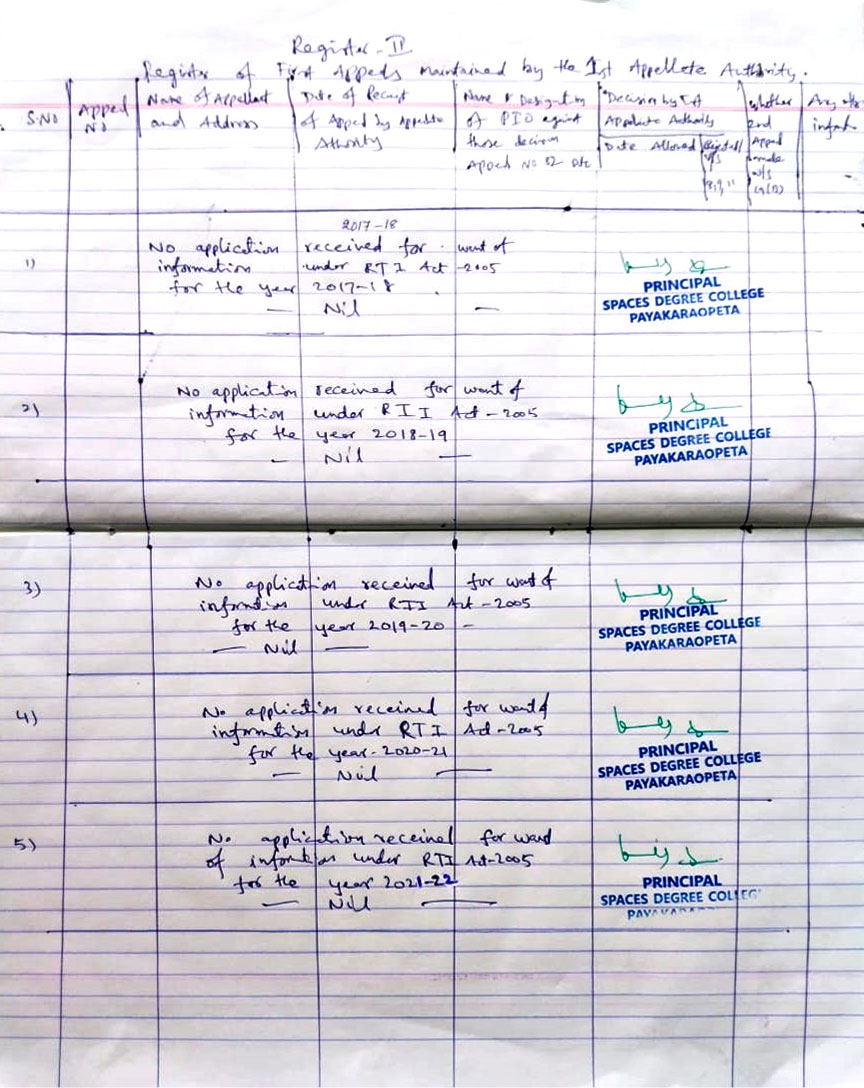 Register-II
Register of First Appeals maintained by the Ist Appellete Authority.
S.No
Appeal No
Name of Appellant and Address
Date of Receipt of Appeal by Appellate Athority
Name & Designation of PIO against those decision Appeal No 52 Dte
Decision by Ist Appellate Authority
Date Allowed
Rejected U/S 8,9,11
Whether 2nd Appeal made U/S 19(3)
Any other
2017-18
1)
No application received for want of
information under RTI Act -2005
for the year 2017-18
— Nil —
PRINCIPAL
SPACES DEGREE COLLEGE
PAYAKARAOPETA
2)
No application received for want of
information under RTI Act - 2005
for the year 2018-19
— Nil —
PRINCIPAL
SPACES DEGREE COLLEGE
PAYAKARAOPETA
3)
No application received for want of
information under RTI Act - 2005
for the year 2019-20 -
— Nil —
PRINCIPAL
SPACES DEGREE COLLEGE
PAYAKARAOPETA
4)
No application received for want of
information under RTI Act-2005
for the year-2020-21
— Nil —
PRINCIPAL
SPACES DEGREE COLLEGE
PAYAKARAOPETA
5)
No application received for want
of information under RTI Act-2005
for the year 2021-22
— Nill —
PRINCIPAL
SPACES DEGREE COLLEGE
PAYAKARAOPETA